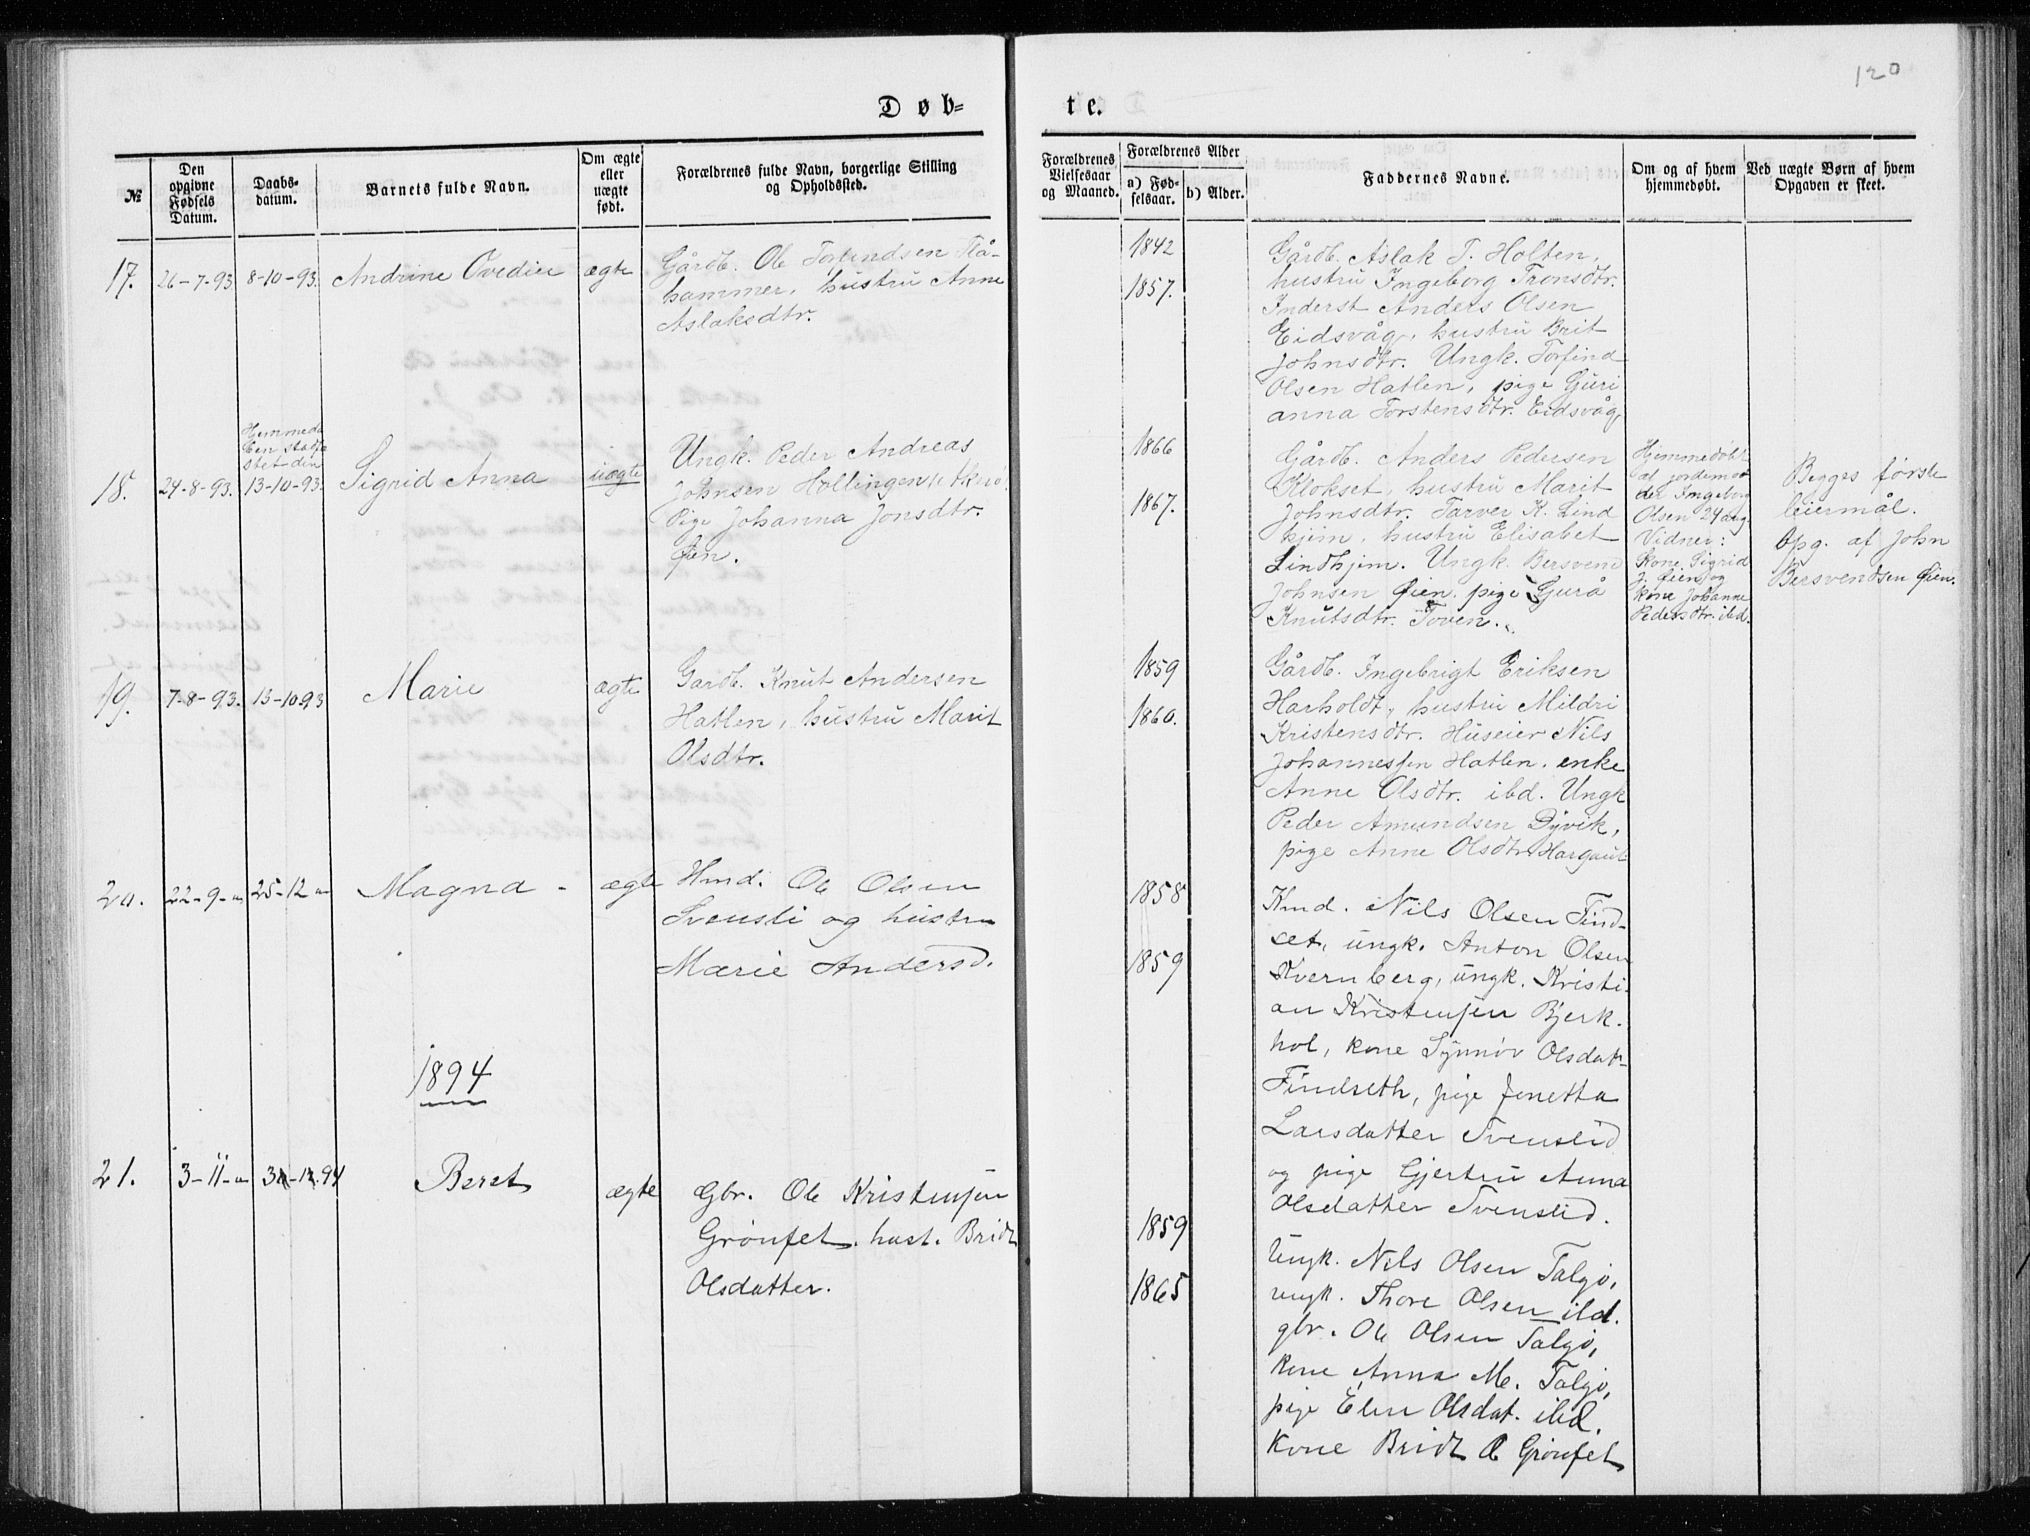 120
Døb=
te.
№
Den opgivne Fødsels Datum.
Daabs-datum.
Barnets fulde Navn.
Om ægte eller uægte født.
Forældrenes fulde Navn, borgerlige Stilling og Opholdssted.
Forældrenes Vielsesaar og Maaned.
Forældrenes Alder
a) Fødselsaar.
b) Alder.
Faddernes Navne.
Om og af hvem hjemmedøbt.
Ved uægte Børn af hvem Opgaven er skeet.
17.
26-7-93
8-10-93.
Andrine Ovedier
ægte
Gårdb. Ole Torfindsen Flå-
hammer, hustru Anne
Aslaksdtr.
1842
1857.
Gårdb. Aslak T. Holten,
hustru Ingeborg Tronsdtr.
Inderst Anders Olsen
Eidsvåg, hustru Brit
Johnsdtr. Ungk. Torfind
Olsen Hatlen, pige Guri
anna Torstensdtr. Eidsvåg,
18.
24-8-93.
stet den
13-10-93.
Sigrid Anna
uægte
Ungk. Peder Andreas
Johnsen Hollingen,
Pige Johanna Jonsdtr.
Øien.
1866
1867.
Gårdb. Anders Pedersen
Klokset, hustru Marit
Johnsdtr. Farver K. Lind
hjem, hustru Elisabet
Lindhjem. Ungk. Bersvend
Johnsen Øien. pige Gurå
Knutsdtr. Toven.
Hjemmedøbt
af jordemo
der Ingeborg
Olsen 24 aug.
Vidner:
Kone Sigrid
J. Øien og
kone Johanne
Pedersdtr. ibd.
Begges første
leiermål.
Opg. af John
Bersvendsen Øien.
19.
7-8-93.
13-10-93
Marie
ægte
Gardb. Knut Andersen
Hatlen, hustru Marit
Olsdtr.
1859
1860.
Gårdb. Ingebrigt Eriksen
Harholdt, hustru Mildri
Kristensdtr. Huseier Nils
Johannessen Hatlen. enke
Anne Olsdtr. ibd. Ungk
Peder Amundsen Dyvik,
pige Anne Olsdtr. Hargaut
20.
22-9-"
25-12 "
Magna -
ægte
Hmd. Ole Olsen
Svensli og hustru
Marie Andersd.
1858
1859
Kmd. Nils Olsen Find-
set, ungk. Anton Olsen
Kvernberg, ungk. Kristi-
an Kristensen Bjerk-
hol, kone Synnøv Olsdat-
Findseth, pige Jenetta
Larsdatter Svenslid
og pige Gjertru Anna
Olsdatter Svenslid.
1894
21.
3-11-"
Beret
ægte
Gbr. Ole Kristensen
Grønset. hust. Bridt
Olsdatter.
1859
1865
Ungk. Nils Olsen Talgø,
ungk. Thore Olsen ibd.
gbr. Ole Olsen Talgø,
kone Anna M. Talgø,
pige Elen Olsdat. ibd.
Kone Bridt O Grønset